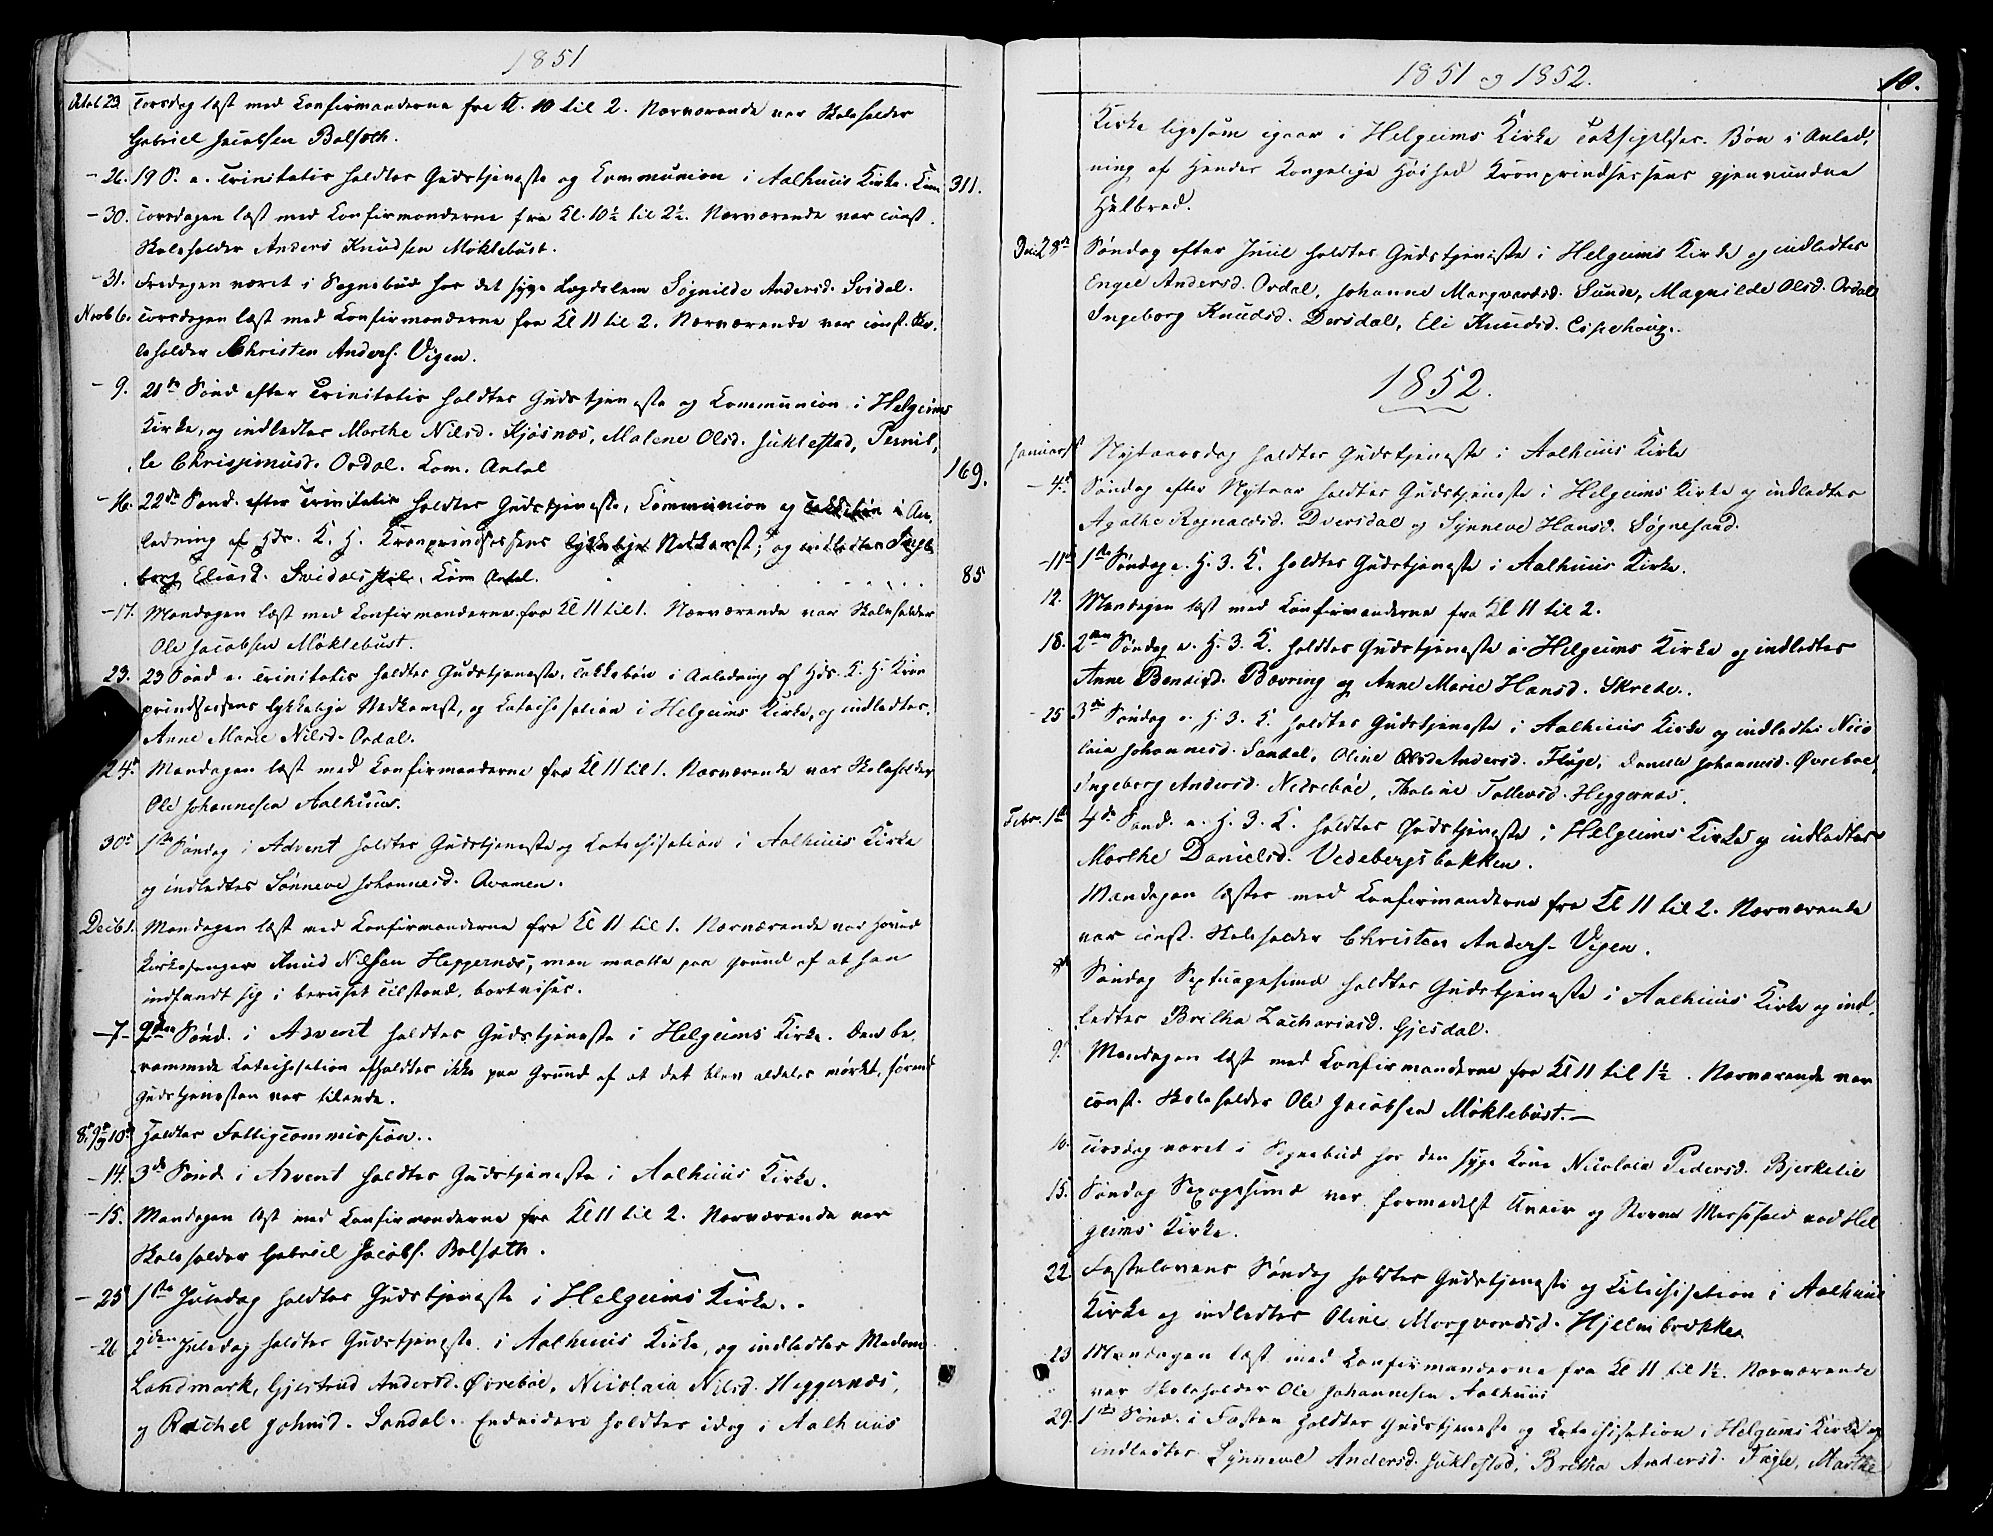 1851
Octob 23. Torsdag læst med Confirmanderne fra Kl. 10 til 2. Nærværende var Skoleholder
Gabriel Jacobsen Bolsæth.
- 26. 19 S. e. Trinitatis holdtes Gudstjeneste og Communion i Aalhuus Kirke. Com 311.
- 30. Torsdagen læst med Confirmanderne fra Kl. 10½ til 2½. Nærværende var const.
Skoleholder Anders Knudsen Møklebust.
- 31. Fredagen været i Sognebud hos det syge Lægdslem Søgnilde Andersd. Svidal.
Novb 6. Torsdagen læst med Confirmanderne fra Kl 11 til 2. Nærværende var const. Sko-
leholder Christen Anders. Vigen.
- 9. 21de Sønd efter Trinitatis holdtes Gudstjeneste og Communion i Helgeims
Kirke, og indledtes Marthe Nilsd. Kjøsnæs, Malene Olsd. Juklestad, Pernil-
le Chrispinusd. Ordal. Com. Antal 169.
- 16. 22de Sønd. efter Trinitatis holdtes Gudstjeneste, Communion og Takkebøn i An-
ledning af Hds. K. H. Kronprindsessens lykkelige Nedkomst; og indledtes Inge-
borg Eliasd. Svidalsskil. Com Antal. 85
- 17. Mandagen læst med Confirmanderne fra Kl 11 til 1. Nærværende var Skoleholder
Ole Jacobsen Møklebust.
23. 23 Sønd e. Trinitatis holdtes Gudstjeneste, Takkebøn i Anledning af Hds. K. H. Kron
prindsessens lykkelige Nedkomst, og Catechisation i Helgeims Kirke, og indledtes
Anne Marie Nilsd. Ordal.
24de Mandagen læst med Confirmanderne fra Kl 11 til 1. Nærværende var Skoleholder
Ole Johannesen Aalhuus.
30te 1ste Søndag i Advent holdtes Gudstjeneste og Catechisation i Aalhuus Kirke
og indledtes Sønneve Johannesd. Aramen.
Decib 1. Mandagen læst med Confirmanderne fra Kl 11 til 1. Nærværende var
Kirkesanger Knud Nilsen Heggernæs, men maatte paa Grund af at han
indfandt sig i beruset Tilstand, bortvises.
- 7 - 2den Sønd. i Advent holdtes Gudstjeneste i Helgeims Kirke. Den be-
rammede Catechisation afholdtes ikke paa Grund af at det blev aldeles mørkt, førend
Gudstjenesten var tilende.
8de 9de og 10de Holdtes Fattigcommission.
- 14. 3de Sønd i Advent holdtes Gudstjeneste i Aalhuus Kirke.
- 15. Mandagen læst med Confirmanderne fra Kl 11 til 2. Nærværende var
Skoleholder Gabriel Jacobs. Bolsæth.
- 25 1ste Juledag holdtes Gudstjeneste i Helgeims Kirke.
- 26 2den Juledag holdtes Gudstjeneste i Aalhuus Kirke, og indledtes Madame
Landmark, Gjertrud Andersd. Øvrebøe, Nicolaia Nilsd. Heggernæs,
og Rachel Johnsd. Sandal. Endvidere holdtes idag i Aalhuus
1851 og 1852. 10.
Kirke ligesom igaar i Helgeims Kirke Taksigelses-Bøn i Anled-
ning af Hendes Kongelige Høihed Kronprindsessens gjenvundne
Helbred.
Deci 28de Søndag efter Juul holdtes Gudstjeneste i Helgeims Kirke og indledtes
Engel Andersd. Ordal, Johanne Marqvardsd. Sunde, Magnilde Olsd. Ordal
Ingeborg Knudsd. Dversdal, Eli Knudsd. Espehoug.
1852.
Januar 1st Nytaarsdag holdtes Gudstjeneste i Aalhuus Kirke
- 4de Søndag efter Nytaar holdtes Gudstjeneste i Helgeims Kirke og indledtes
Agathe Rognaldsd. Dversdal og Synneve Hansd. Søgnesand.
- 11te 1ste Søndag e. H. 3. K. holdtes Gudstjeneste i Aalhuus Kirke.
12. Mandagen læst med Confirmanderne fra Kl 11 til 2.
18. 2den Søndag e. H. 3. K. holdtes Gudstjeneste i Helgeims Kirke og indledtes
Anne Bendixd. Bævring og Anne Marie Hansd. Skrede.
- 25 3de Søndag e. H. 3. K. holdtes Gudstjeneste i Aalhuus Kirke og indledtes Nico
laia Johannesd. Sandal, Oline Andersd. Fluge, Johannesd. Øvrebøe,
Ingeborg Andersd. Nedrebøe, Thaline Tollevsd. Heggernæs.
Febr. 1ste 4de Sønd. e. H. 3. K. holdtes Gudstjeneste i Helgeims Kirke og indledtes
Marthe Danielsd. Vedebergsbakken.
Mandagen læstes med Confirmanderne fra Kl 11 til 2. Nærværende
var const. Skoleholder Christen Anders. Vigen.
Søndag Septuagesima holdtes Gudstjeneste i Aalhuus Kirke og ind-
ledtes Britha Zachariasd. Gjesdal.
9. Mandagen læst med Confirmanderne fra Kl 11 til 1½. Nærværende var
const. Skoleholder Ole Jacobsen Møklebust. -
10. Tirsdag været i Sognebud hos den syge Kone Nicolaia Pedersd. Bjerkelie
15. Søndag Sexagesima var formedelst Uveir og Storm Messefald ved Hel
geims Kirke.
22 Fastelavens Søndag holdtes Gudstjeneste og Catechisation i Aalhuus
Kirke og indledtes Oline Marqvardsd. Hjelmbrekke
23 Mandagen læst med Confirmanderne fra Kl 11 til 1½. Nærværende
var Skoleholder Ole Johannesen Aalhuus
29. 1ste Sønd. i Fasten holdtes Gudstjeneste og Catechisation i Helgeims Kirke og
indledtes Synneve Andersd. Juklestad, Britha Andersd. Fugle, Marthe